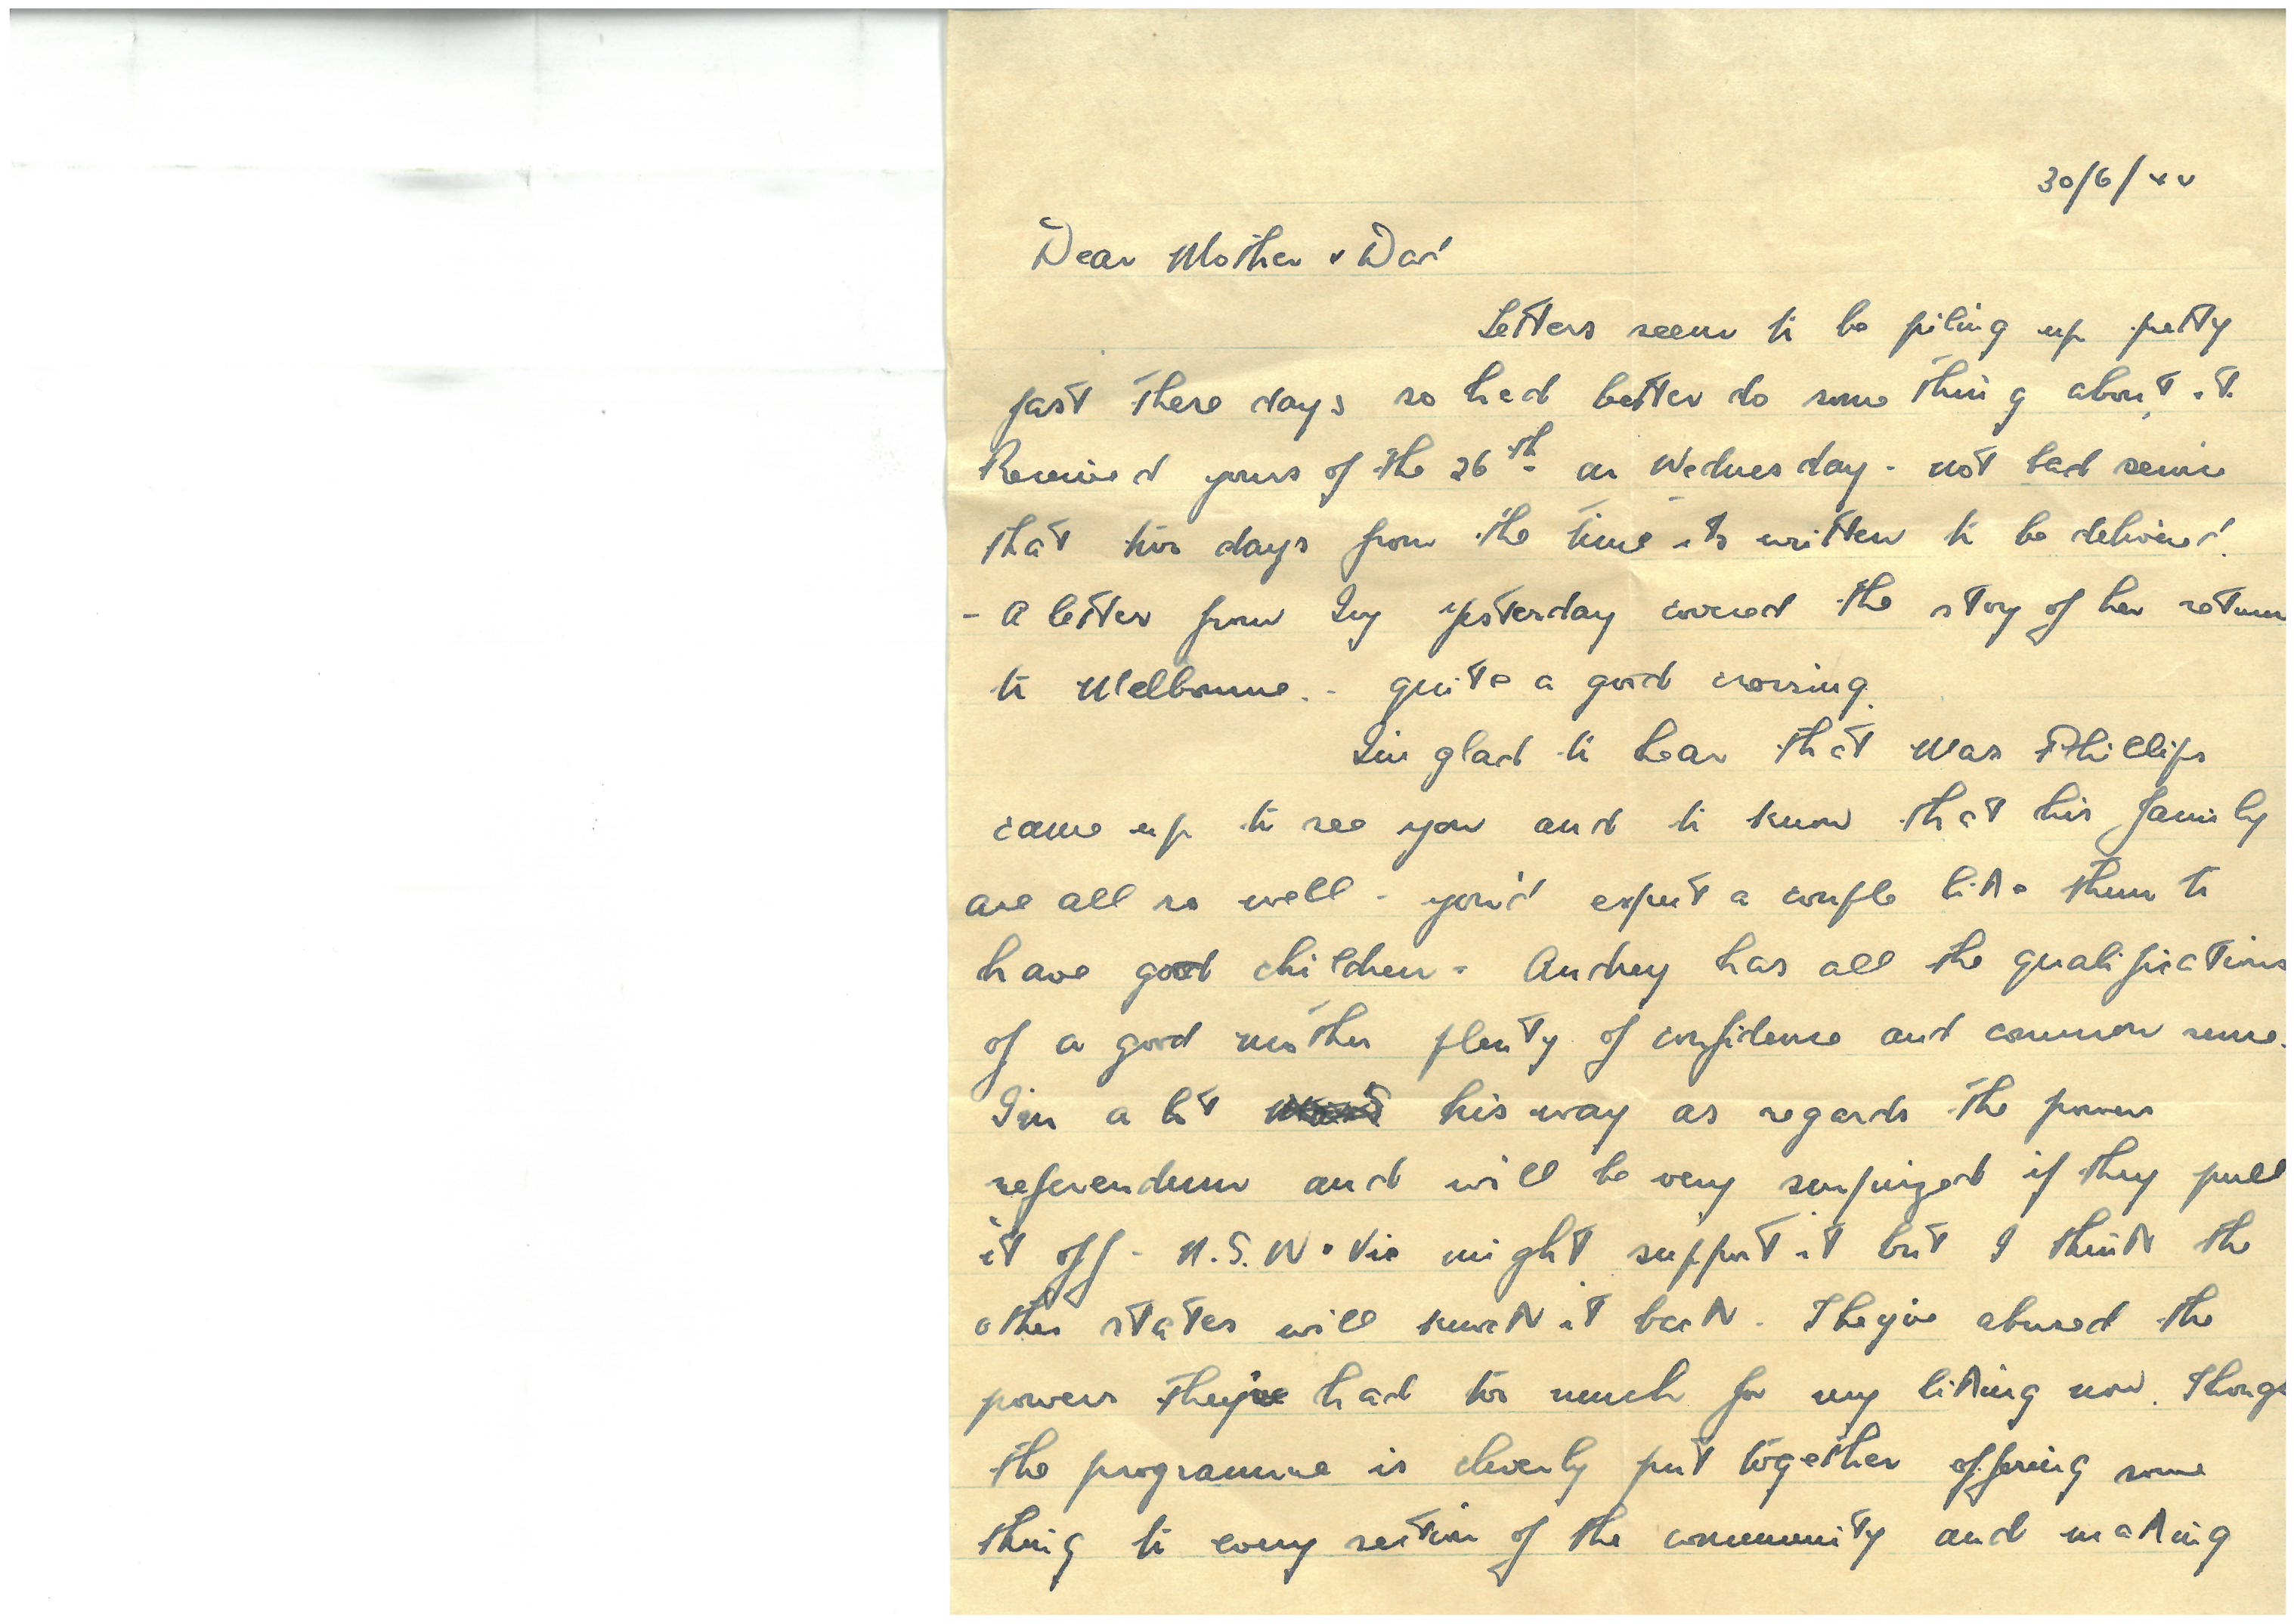 30/6/44
Dear Mother & Dad
Letters seem to be piling up pretty
fast these days so had better do some thing about it.
Received yours of the 26th on Wednesday - not bad service
that two days from the time its written to be delivered.
- A letter from Ivy yesterday covered the story of her return
to Melbourne - quite a good crossing.
I'm glad to hear that Max Phillips
came up to see you and to know that his family
are all so well - you'd expect a couple like them to
have good children - Audrey has all the qualifications
of a good mother plenty of confidence and common sense.
I'm a bit his way as regards the powers
referendum and will be very surprized if they pull
it off - N.S.W & Vic might support it but I think the
other states will knock it back. They've abused the
powers they've had too much for my liking now. Though
the programme is cleverly put together offering some
thing to every section of the community and making